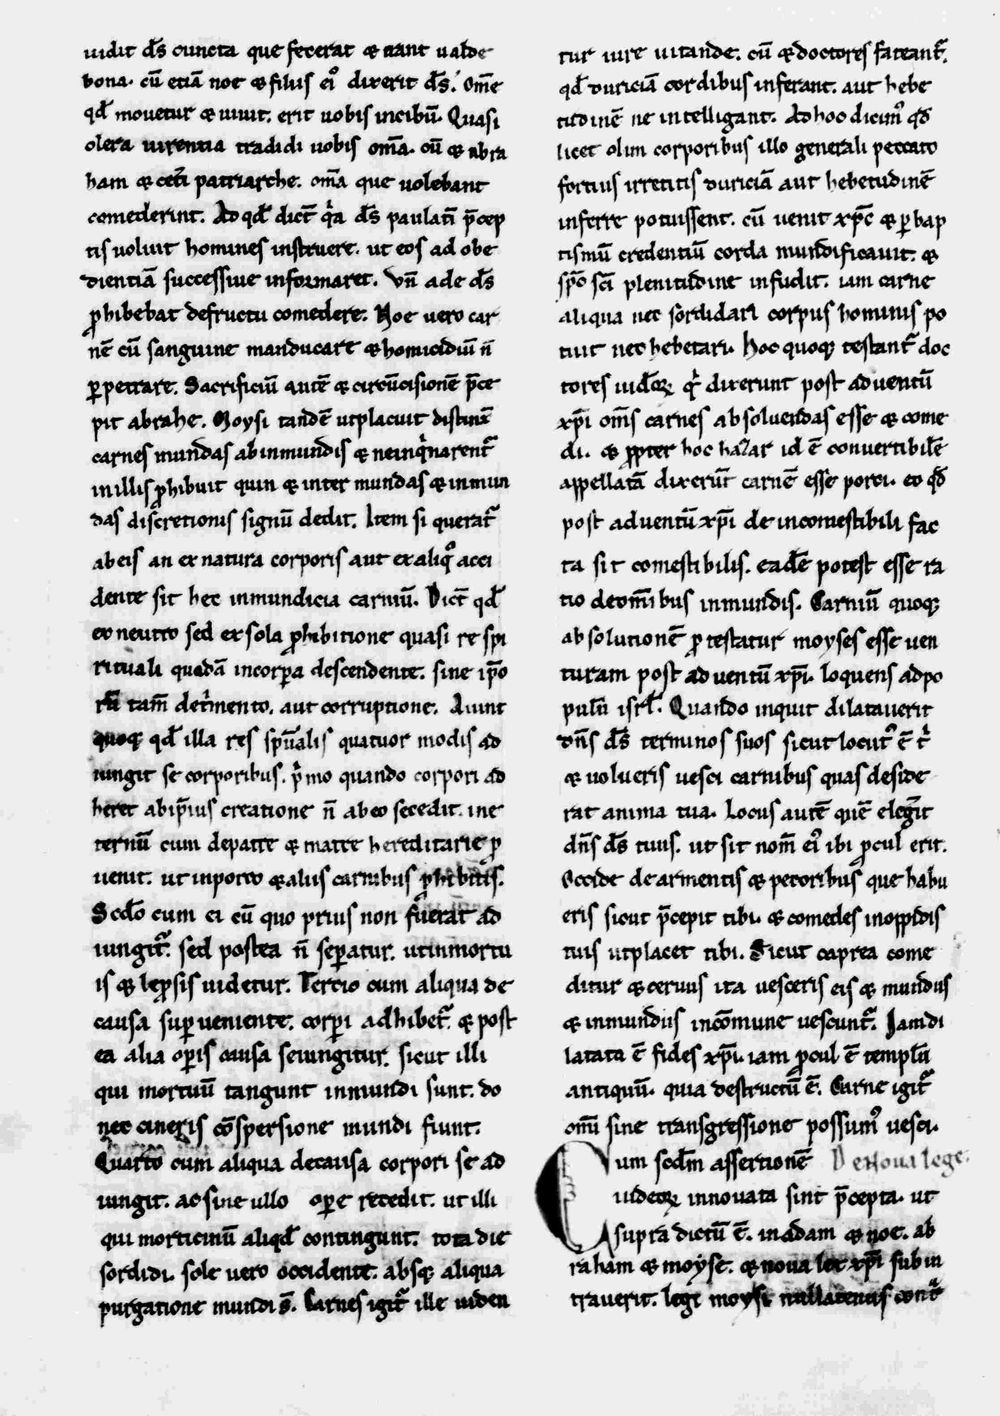 uidit d̄s cuncta que fecerat & erant ualde
bona. cū etiā noe & filiis eiꝰ dixerit d̄s. Om̄e
qd̄ mouetur & uiuit. erit uobis in cibū. Quasi
olera uirentia tradidi uobis om̄ia. cū & abra
ham & cet̄i patriarche. om̄a que uolebant
comederint. Ad qd̄ dict̄ qͥa d̄s paulati p̄cep
tis uoluit homines instruere. ut eos ad obe
dientiā successiue informaret. Vn̄ ade d̄s
ꝓhibebat de fructu comedere. Noe uero car
nē cū sanguine manducare & homicidiū n̄
ꝑpetrare. Sacrificiū autē & circūcisionē p̄ce
pit abrahe. Moysi tandē ut placuit distinx̄
carnes mundas ab inmundis & ne inqͥnarent᷑
in illis ꝓhibuit quin & inter mundas & inmun
das discretionis signū dedit. Item si querat᷑
ab eis an ex natura corporis aut ex aliqͦ acci
dente sit hec inmundicia carniū. Dict̄ qd̄
ex neutro sed ex sola ꝓhibitione quasi re spi
rituali quadā in corꝑa descendente. sine ip̄o
rū tam̄ det̄imento. aut corruptione. Aiunt
quoqꝫ qd̄ illa res sp̄ualis quatuor modis ad
iungit se corporibus. pͥmo quando corpori ad
heret ab ip̄ius creatione n̄ ab eo secedit. in e
ternū cum de patre & matre hereditarie ꝓ
uenit. ut in porco & aliis carnibus ꝓhibitis.
Scd̄o cum ei cū quo prius non fuerat ad
iungit᷑. sed postea n̄ seꝑatur. ut in mortu
is & leprosis uidetur. Tercio cum aliqua de
causa suꝑueniente. corp̄i adhibet᷑. & post
ea alia oꝑis causa seiungitur. sicut illi
qui mortuū tangunt inmundi sunt. do
nec cineris cōspersione mundi fiunt.
Quarto cum aliqua de causa corpori se ad
iungit. ac sine ullo oꝑe recedit. ut illi
qui morticinū aliqd̄ contingunt. tota die
sordidi. sole uero occidente. absqꝫ aliqua
purgatione mundi s̄. Carnes igit᷑ ille uiden
tur iure uitande. cū & doctores fateant᷑.
qd̄ duriciā cordibus inferant. aut hebe
tudinē ne intelligant. Ad hoc dicimꝰ qd̄
licet olim corporibus illo generali peccato
fortius irretitis duriciā aut hebetudinē
inferre potuissent. cū uenit xp̄c & ꝑ bap
tismū credentiū corda mundificauit. &
sp̄c sc̄i plenitudine infudit. iam carne
aliqua nec sordidari corpus hominis po
tuit nec hebetari. Hoc quoqꝫ testant᷑ doc
tores iudeoꝝ qͥ dixerunt post aduentū
xp̄i om̄s carnes absoluendas esse & come
di. & ꝓpter hoc hazar id ē conuertibilē
appellatā dixerūt carnē esse porci. eo qd̄
post aduentū xp̄i de incomestibili fac
ta sit comestibilis. eadē potest esse ra
tio de om̄ibus inmundis. Carniū quoqꝫ
absolutionē ꝓtestatur moyses esse uen
turam post aduentū xp̄i. loquens ad po
pulū isrl̄. Quando inquit dilatauerit
dn̄s d̄s terminos tuos sicut locutꝰ ē tͥ
& uolueris uesci carnibus quas deside
rat anima tua. Locus autē quē eleḡit
dn̄s d̄s tuus. ut sit nom̄ eiꝰ ibi ꝓcul erit.
Occide de armentis & pecoribus que habu
eris sicut p̄cepit tibi. & comedes in oppidis
tuis ut placet tibi. Sicut caprea come
ditur & ceruus ita uesceris eis & mundus
& inmundus in cōmune uescunt᷑. Iam di
latata ē fides xp̄i. iam ꝓcul ē templū
antiquū. quia destructū ē. Carne igit᷑
om̄i sine transgressione possumꝰ uesci.
Cum scd̄m assertionē De noua lege.
iudeoꝝ innouata sint p̄cepta. ut
supra dictū ē. in adam & noe. ab
raham & moyse. & noua lex xp̄i subin
trauerit. legi moysi nullatenus cont᷑